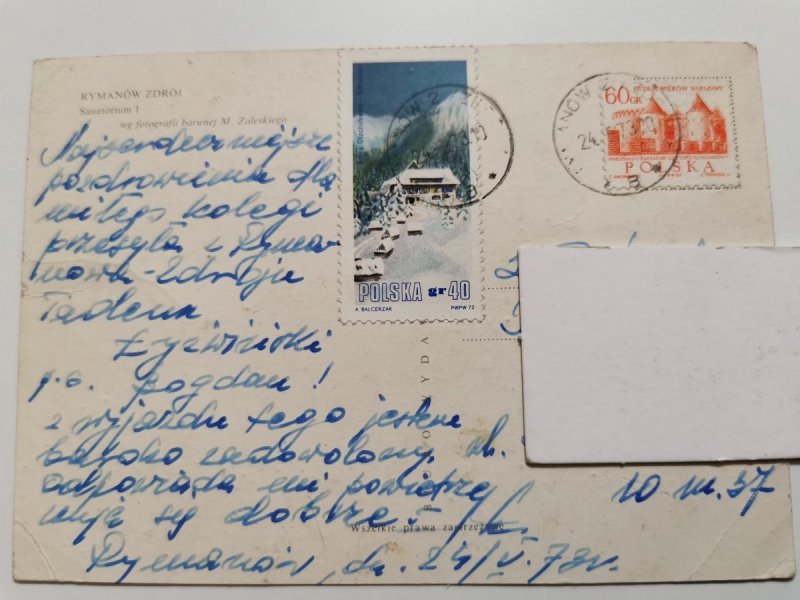 RYMANÓW ZDRÓJ
Sanatorium I
wg fotografii barwnej M. Zaleskiego
Najserdeczniejsze
pozdrowienia dla
miłego kolegi
przesyła z Ryma-
nowa-Zdroju
Tadeusz
p.s. Bogdan!
z wyjazdu tego jestem
bardzo zadowolony.
odpowiada mi powietrze
czuję się dobrze.
Rymanów, dn. 24/V.73r.
POLSKA gr 40
A. BALCERZAK
PWPW 72
60 GR
POLSKA
BIURO WYDAW
Wszelkie prawa zastrzeżone
10 m. 37